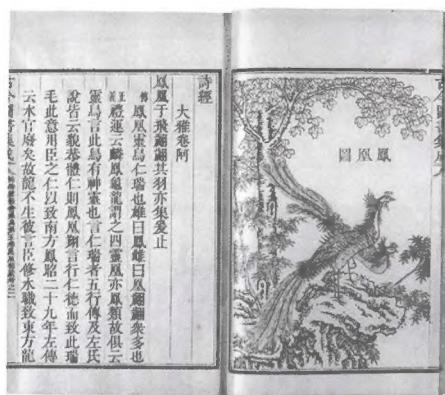 鳳凰圖
詩經
大雅卷阿
鳳凰于飛翽翽其羽亦集爰止
傳鳳凰靈鳥仁瑞也雄曰鳳雌曰凰翽翽衆多也
正義禮運云麟鳳龜龍謂之四靈凰亦鳳類故俱云
靈鳥言此鳥有神靈也言仁瑞者五行傳及左氏
說皆云貌恭體仁則鳳凰翔言行仁德而致此瑞
毛此意用臣之仁以致南方鳳昭二十九年左傳
云水官廢矣故龍不生彼言臣修水職致東方龍
古今圖書集成